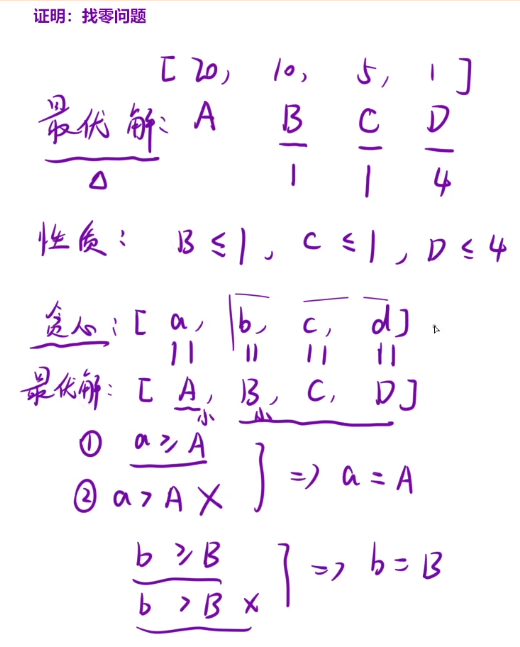 证明：找零问题
[ 20, 10, 5, 1 ]
最优解: A B C D
△ 1 1 4
性质: B ≤ 1, C ≤ 1, D ≤ 4
贪心: [ a, b, c, d ]
|| || || ||
最优解: [ A, B, C, D ]
小 小
① a ≥ A
② a > A × } => a = A
b ≥ B
b > B × } => b = B